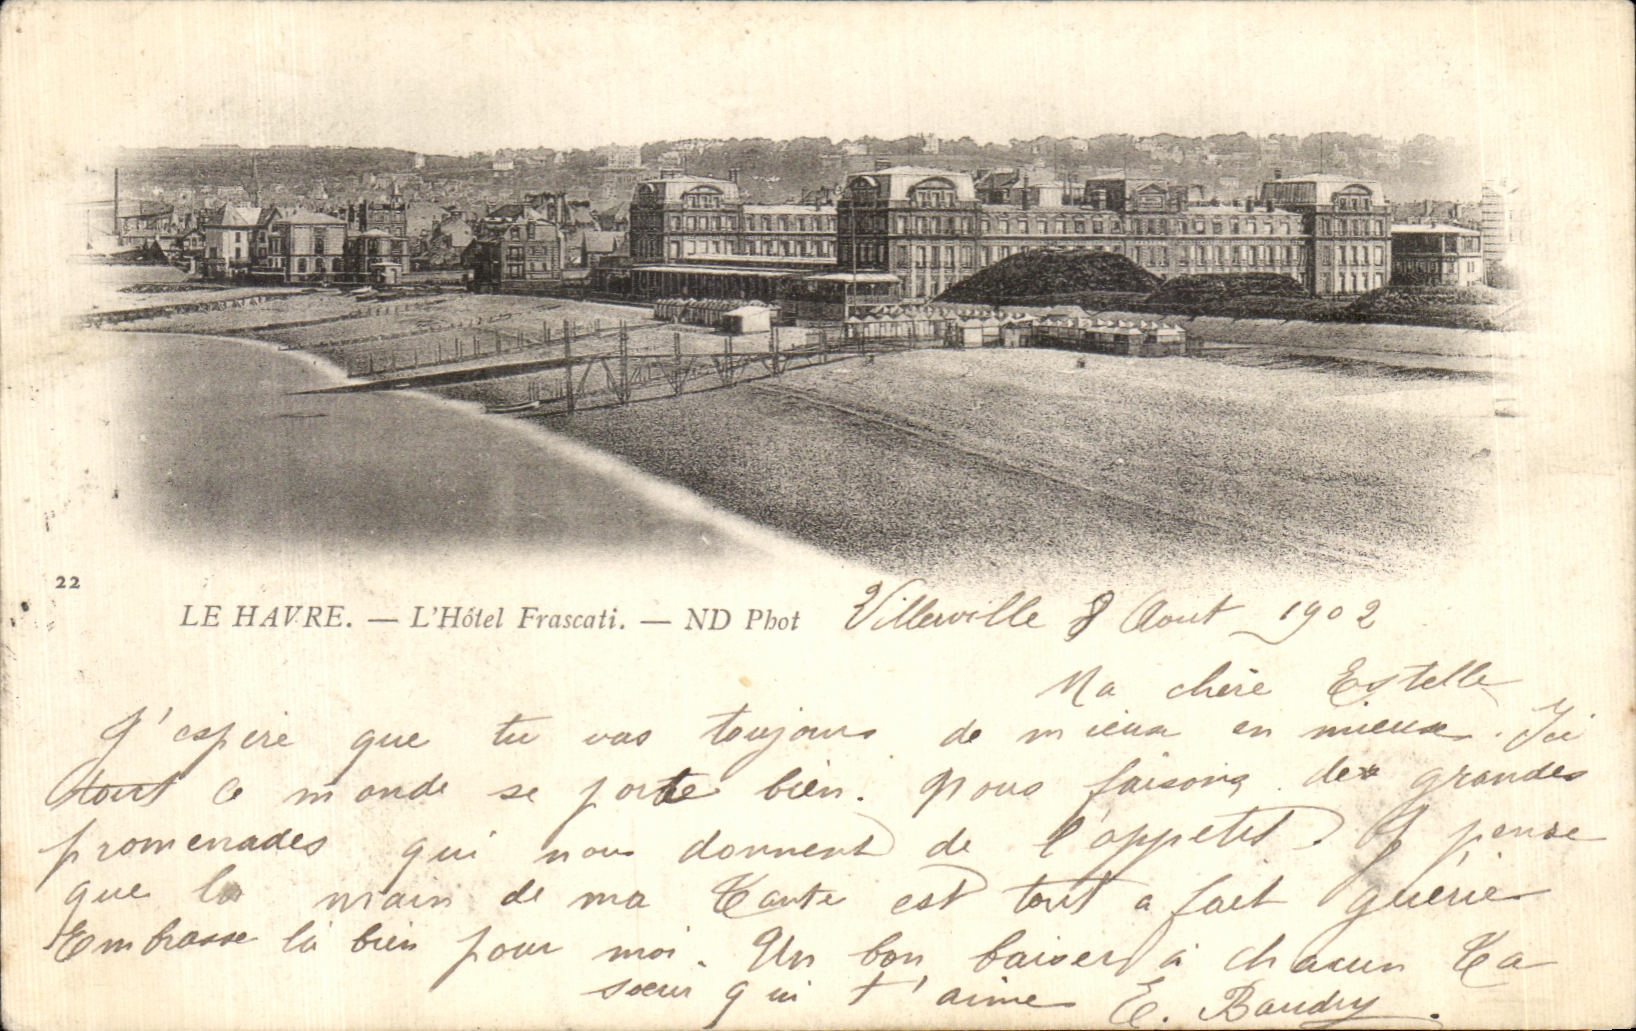 22
LE HAVRE. — L'Hôtel Frascati. — ND Phot
Villerville 8 Aout 1902
Ma chère Estelle
J'espère que tu vas toujours de mieux en mieux. Ici
tout ce monde se porte bien. Nous faisons des grandes
promenades qui nous donnent de l'appetit. J pense
que la main de ma Tante est tout a fait guérie
Embrasse la bien pour moi. Un bon baiser à chacun Ta
sœur qui t'aime E. Baudry.